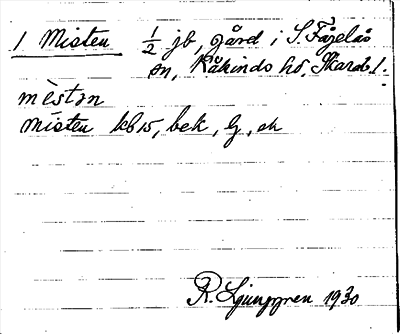 1 Misten 1/2 jb, gård i S. Fågelås
sn, Kåkinds hd, Skarab. l.
mèstən
Misten kb 15, bek, lg, ek
R. Ljunggren 1930